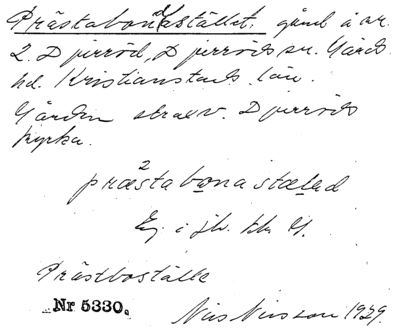 Prästabonastället. gård å nr
2. Djurröd, Djurröds sn. Gärds
hd. Kristianstads län.
Gården strax v. Djurröds
kyrka.
2
præstabonastæləd
Eg. i jb.
Prästboställe
Nr 5330.
Nils Nilsson 1929.